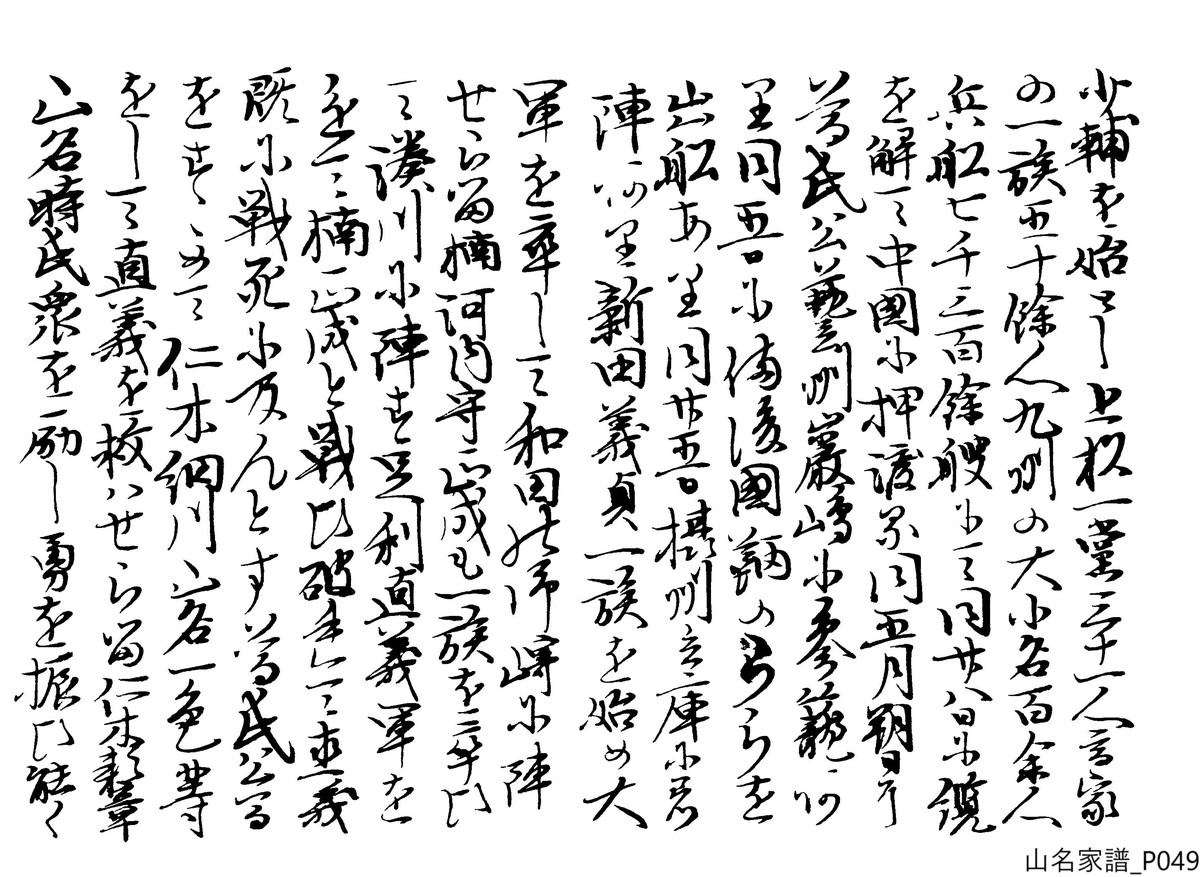 少輔を始とし上杉一黨三十一人高家
の一族五十餘人九州の大小名百余人
兵船七千三百餘艘にて同廿八日に纜
を解て中國に押渡る同五月朔日に
尊氏公藝州巌嶋に参籠有
里同五日に備後國鞆のうらを
出船あり同廿五日攝州兵庫に着
陣有り新田義貞一族を始め大
軍を率して和田の御崎に陣
せらる楠河内守正成も一族を率ひ
て湊川に陣す足利直義軍を
進て楠正成と戦ひ破れて直義
既に戦死に及んとす尊氏公高
をすゝめて仁木細川山名一色等
をして直義を救はせらる仁木頼章
山名時氏衆を励し勇を振ひ能く